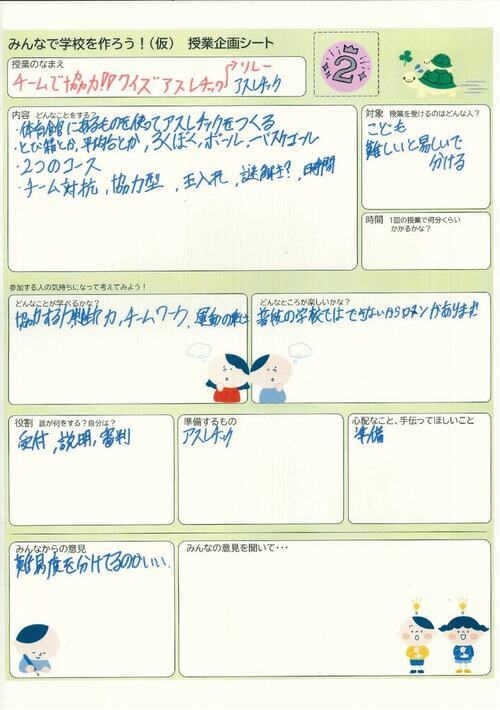 みんなで学校を作ろう！（仮） 授業企画シート
2
授業のなまえ
チームで協力!!クイズアスレチック
リレー
アスレチック
内容 どんなことをする？
・体育館にあるものを使ってアスレチックをつくる
・とび箱とか、平均台とか、ろくぼく、ボール、バスケゴール
・2つのコース
・チーム対抗、協力型、玉入れ、謎解き？、時間
対象 授業を受けるのはどんな人？
こども
難しいと易しいで
分ける
時間 1回の授業で何分くらい
かかるかな？
参加する人の気持ちになって考えてみよう！
どんなことが学べるかな？
協力する力、判断力、チームワーク、運動の楽しさ
どんなところが楽しいかな？
普段の学校ではできないからロマンがあります
役割 誰が何をする？自分は？
受付、説明、審判
準備するもの
アスレチック
心配なこと、手伝ってほしいこと
準備
みんなからの意見
難易度を分けてるのがいい。
みんなの意見を聞いて・・・